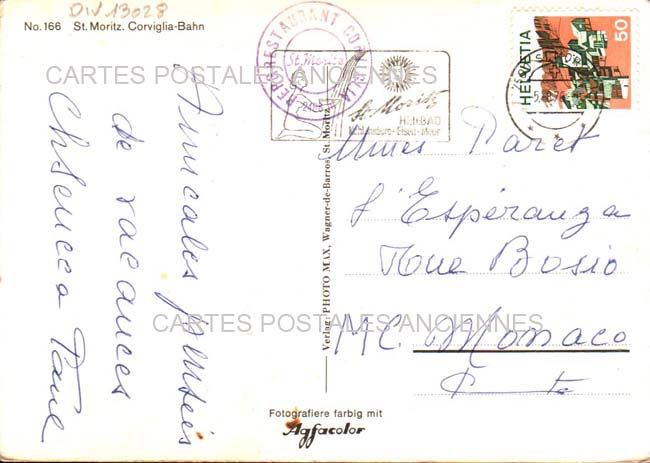 DIV 13028
No. 166 St. Moritz. Corviglia-Bahn
Amicales pensées
de vacances
BERGRESTAURANT CORVIGLIA
St. Moritz
St. Moritz
HEILBAD
HELVETIA
50
Mmes Paret
l'Espéranza
Rue Bosio
MC. Monaco
Verlag: PHOTO MAX, Wagner-de-Barros, St. Moritz
Fotografiere farbig mit
Agfacolor
CARTES POSTALES ANCIENNES
CARTES POSTALES ANCIENNES